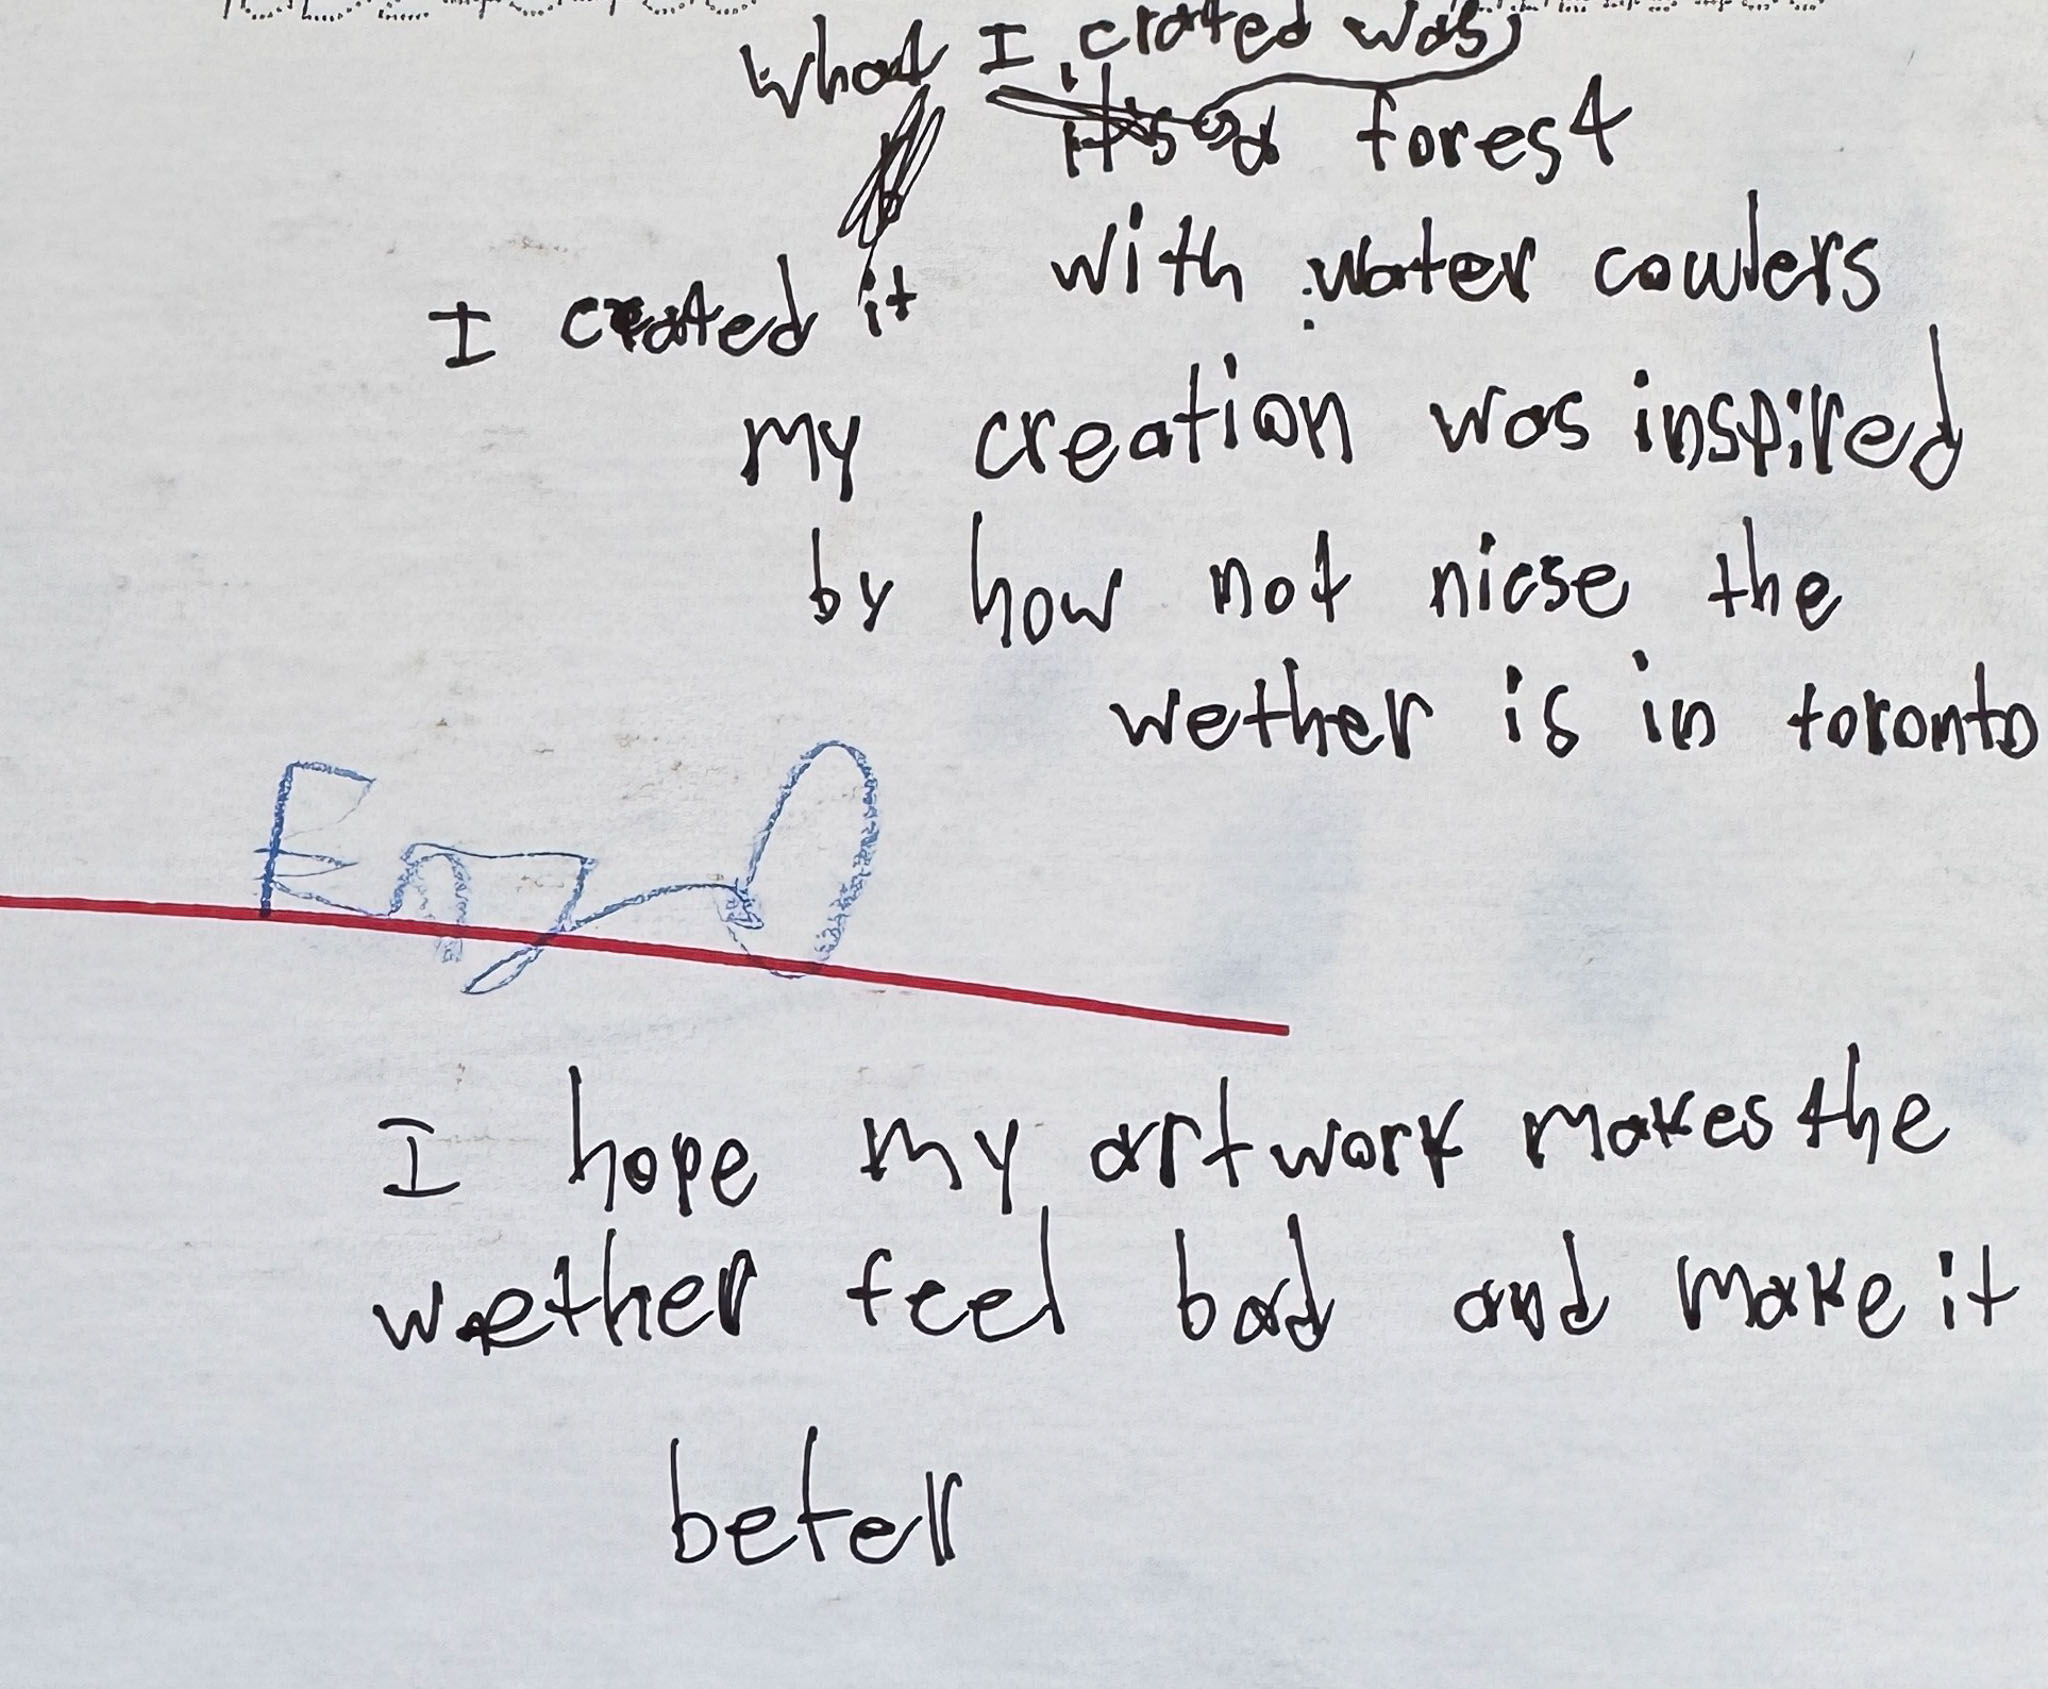 what I crated was
it's a forest
I created it with water cowlers
my creation was inspired
by how not nicse the
wether is in toronto
Enzo
I hope my artwork makes the
wether feel bad and make it
beter